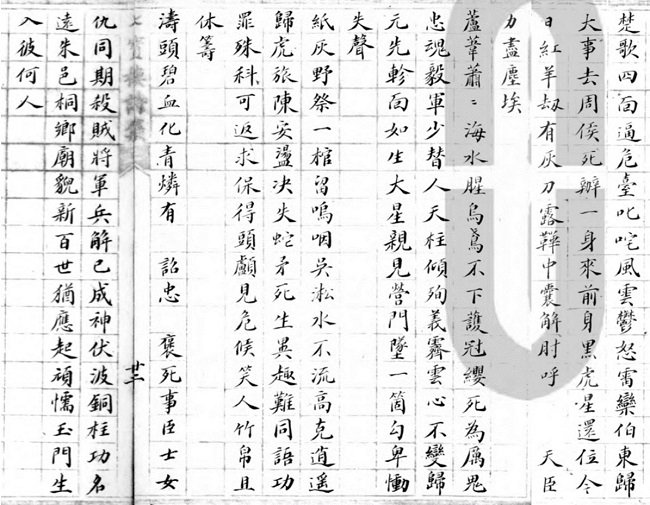 楚歌四面逼危臺叱咤風雲鬱怒雷欒伯東歸
大事去周侯死辦一身來前身黑虎星還位今
日紅羊劫有灰刀露鞾中囊解肘呼 天臣
力盡塵埃
蘆葦蕭〻海水腥烏鳶不下護冠纓死為厲鬼
忠魂毅軍少替人天柱傾殉義霽雲心不變歸
元先軫面如生大星親見營門墜一箇勾卑慟
失聲
紙灰野祭一棺留嗚咽吳淞水不流高克逍遙
歸虎旅陳安盪決失蛇矛死生異趣難同語功
罪殊科可返求保得頭顱見危候笑人竹帛且
休籌
濤頭碧血化青燐有 詔忠 襃死事臣士女
廿二
仇同期殺賊將軍兵解已成神伏波銅柱功名
遠朱邑桐鄉廟貌新百世猶應起頑懦玉門生
入彼何人